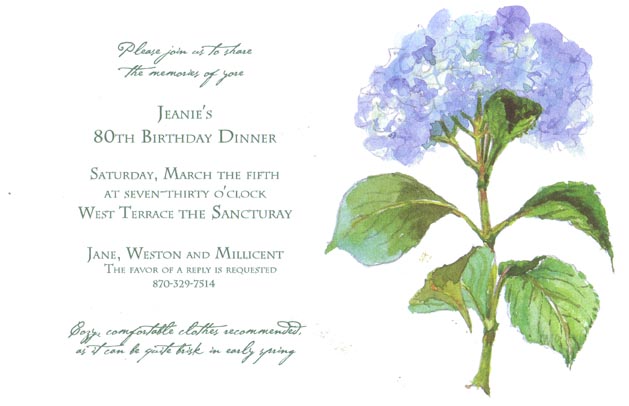 Please join us to share
the memories of yore
Jeanie's
80th Birthday Dinner
Saturday, March the fifth
at seven-thirty o'clock
West Terrace the Sancturay
Jane, Weston and Millicent
The favor of a reply is requested
870-329-7514
Cozy, comfortable clothes recommended,
as it can be quite brisk in early spring